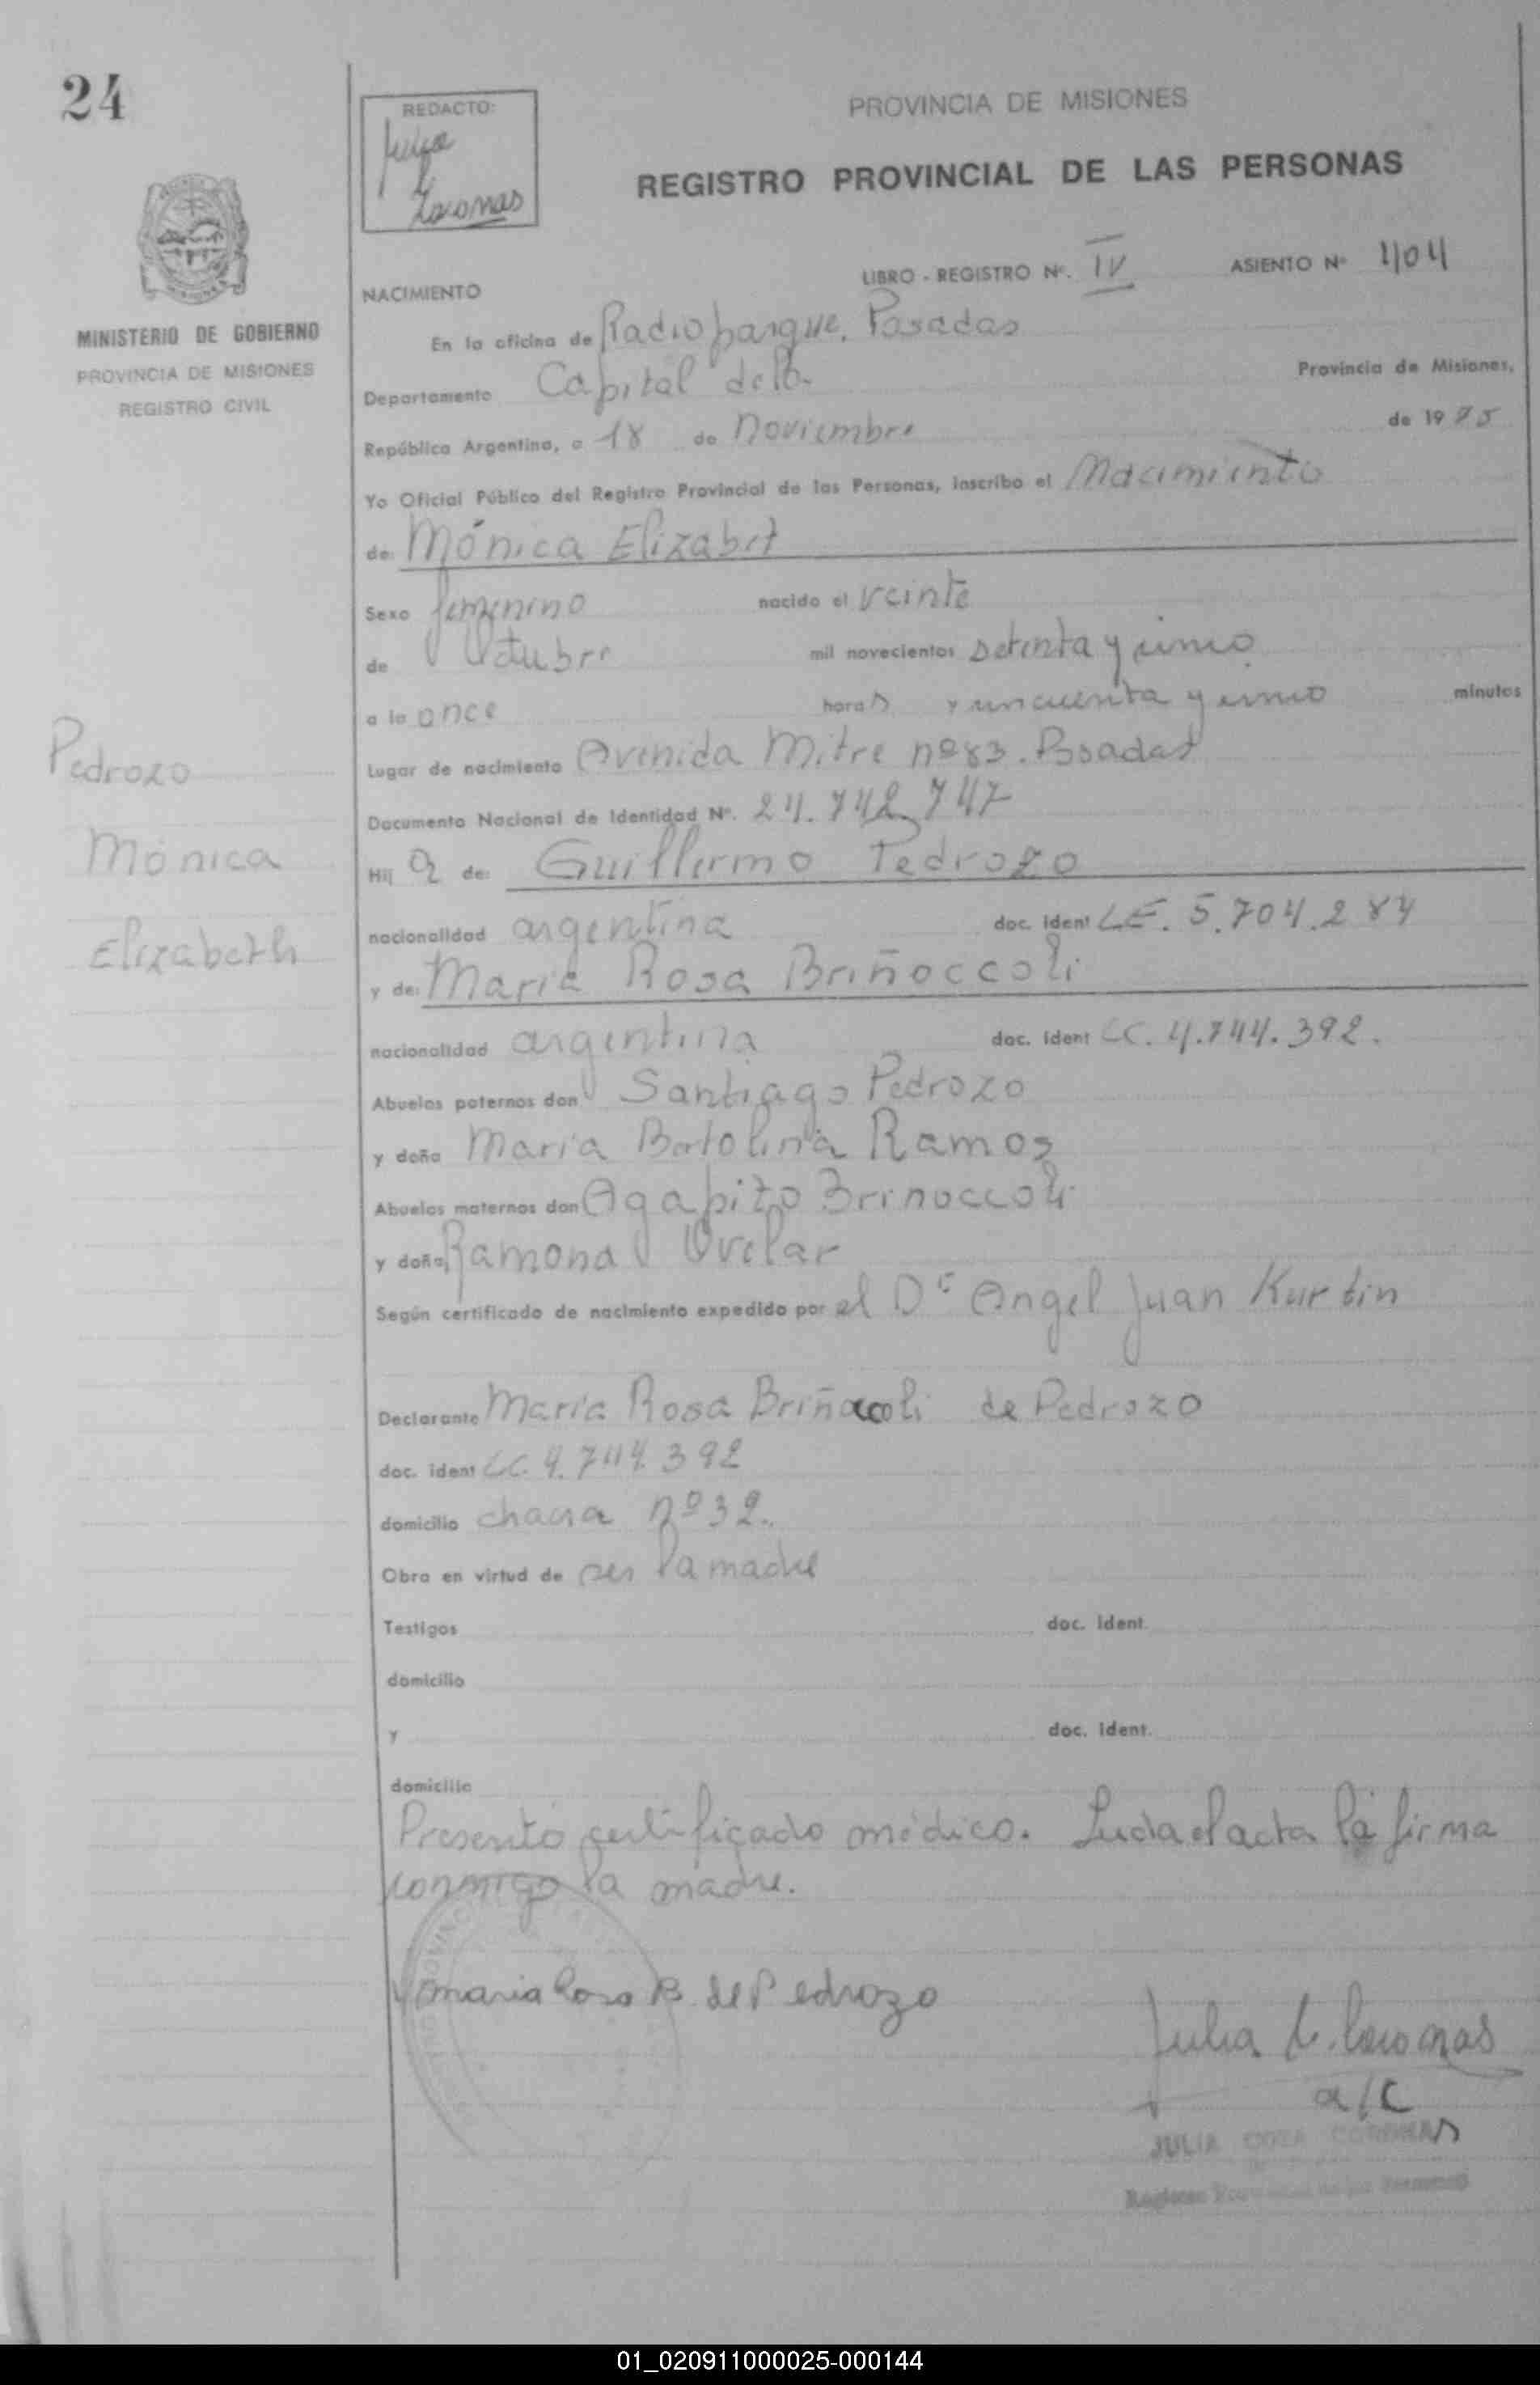 24
REDACTO:
Julia
Coronas
PROVINCIA DE MISIONES
REGISTRO PROVINCIAL DE LAS PERSONAS
MINISTERIO DE GOBIERNO
PROVINCIA DE MISIONES
REGISTRO CIVIL
LIBRO - REGISTRO Nº. IV ASIENTO Nº 404
NACIMIENTO
En la oficina de Radioparque. Posadas
Departamento Capital Provincia de Misiones,
República Argentina, a 18 de Noviembre de 1975
Yo Oficial Público del Registro Provincial de las Personas, inscribo el Nacimiento
de: Mónica Elizabet
Sexo femenino nacido el veinte
de Octubre mil novecientos setenta y cinco
a la once horas y cincuenta y cinco minutos
Lugar de nacimiento Avenida Mitre nº 83. Posadas
Documento Nacional de Identidad Nº. 24.742.747
Hij a de: Guillermo Pedrozo
nacionalidad argentina doc. ident LE. 5.704.284
y de: María Rosa Briñoccoli
nacionalidad argentina doc. ident LC. 4.744.392.
Abuelos paternos don Santiago Pedrozo
y doña María Bartolina Ramos
Abuelos maternos don Agapito Brinoccoli
y doña Ramona Ovelar
Según certificado de nacimiento expedido por el Dr Angel Juan Kurtin
Declarante María Rosa Briñoccoli de Pedrozo
doc. ident LC. 4.744.392
domicilio chacra nº 32.
Obra en virtud de ser la madre
Testigos doc. ident.
domicilio
y doc. ident.
domicilio
Presentó certificado médico. Leida el acta la firma
conmigo la madre.
Maria Rosa B de Pedrozo
Julia C. Coronas
a/c
JULIA CORONAS
Pedrozo
Mónica
Elizabeth
01_020911000025-000144